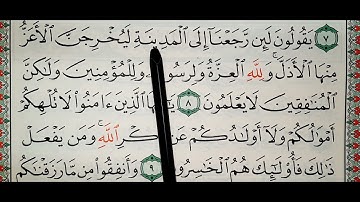 ٧ يَقُولُونَ لَئِن رَّجَعْنَآ إِلَى ٱلْمَدِينَةِ لَيُخْرِجَنَّ ٱلْأَعَزُّ
مِنْهَا ٱلْأَذَلَّ ۚ وَلِلَّهِ ٱلْعِزَّةُ وَلِرَسُولِهِ وَلِلْمُؤْمِنِينَ وَلَٰكِنَّ
ٱلْمُنَٰفِقِينَ لَا يَعْلَمُونَ ٨ ٱلَّذِينَ ءَامَنُوا۟ لَا تُلْهِكُمْ
أَمْوَٰلُكُمْ وَلَآ أَوْلَٰدُكُمْ عَن ٱللَّهِ ۚ وَمَن يَفْعَلْ
ذَٰلِكَ فَأُو۟لَٰٓئِكَ هُمُ ٱلْخَٰسِرُونَ ٩ وَأَنفِقُوا۟ مِن مَّا رَزَقْنَٰكُم